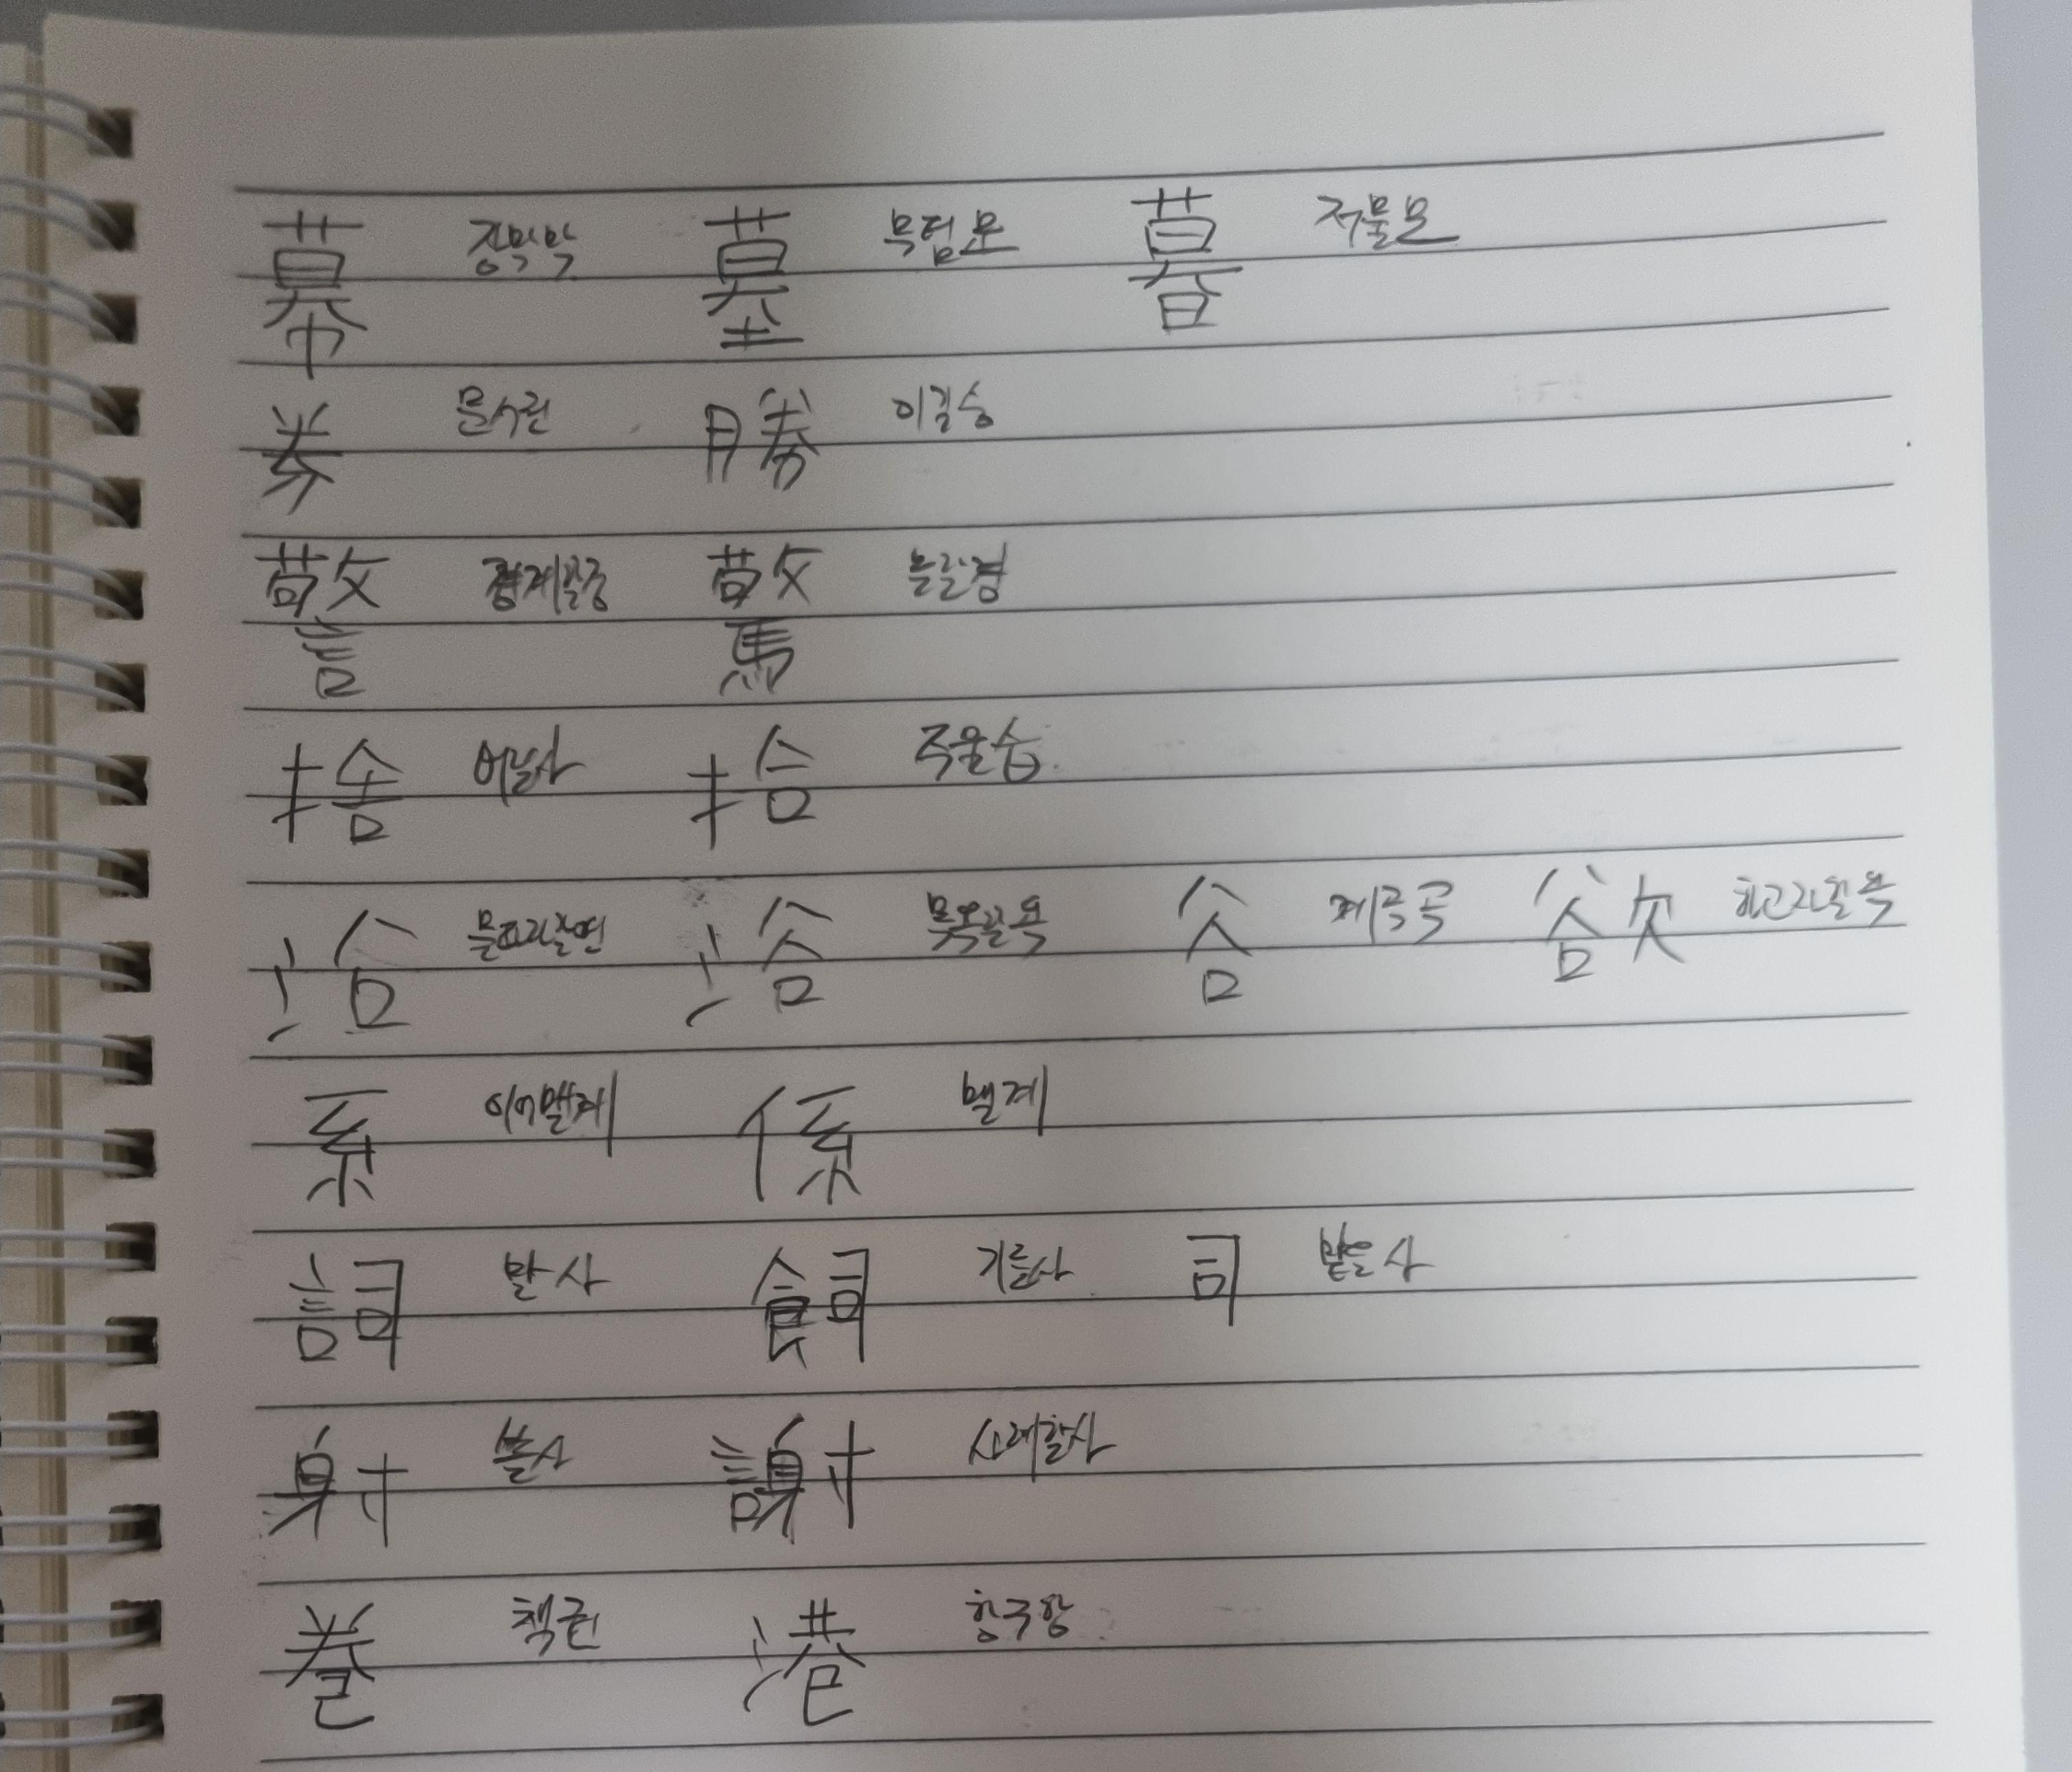 幕 장막막 墓 무덤묘 暮 저물모
券 문서권 勝 이길승
警 경계할경 驚 놀랄경
捨 버릴사 拾 주울습
沿 물따라갈연 浴 목욕할욕 谷 계곡곡 欲 하고자할욕
系 이어맬계 係 맬계
詞 말사 飼 기를사 司 맡을사
射 쏠사 謝 사례할사
卷 책권 港 항구항